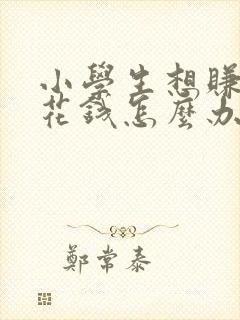 小學生想賺
花錢怎麼办
鄭常泰